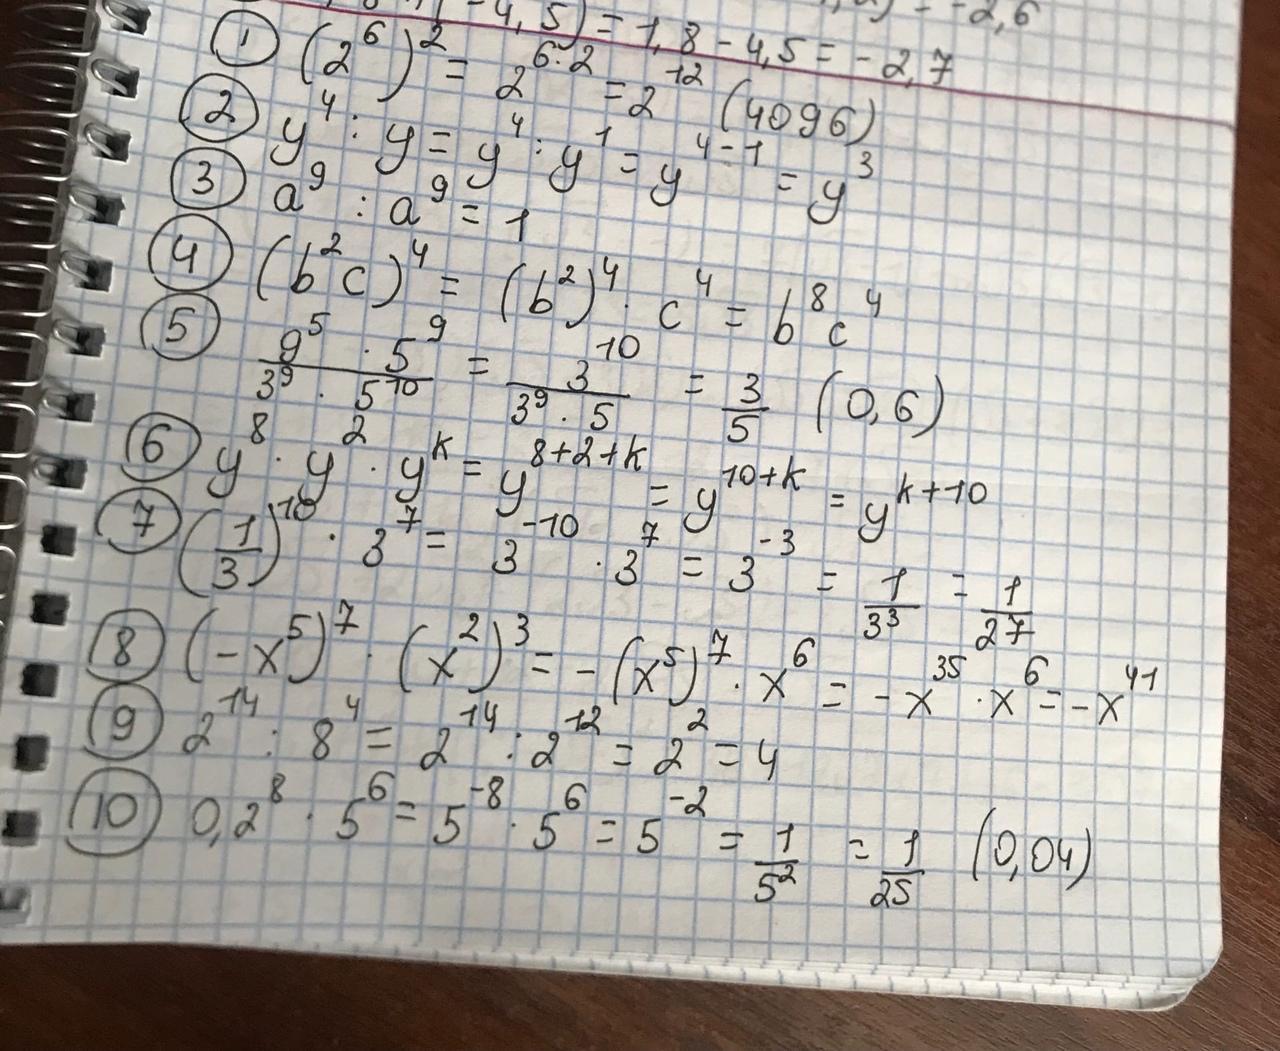 - 4,5) = 1,8 - 4,5 = - 2,7
-2,6
① (2⁶)² = 2⁶·² = 2¹² (4096)
② y⁴ : y = y⁴ : y¹ = y⁴⁻¹ = y³
③ a⁹ : a⁹ = 1
④ (b²c)⁴ = (b²)⁴ · c⁴ = b⁸c⁴
⑤ (9⁵ · 5⁹)/(3⁹ · 5¹⁰) = 3¹⁰/(3⁹ · 5) = 3/5 (0,6)
⑥ y⁸ · y² · yᵏ = y⁸⁺²⁺ᵏ = y¹⁰⁺ᵏ = yᵏ⁺¹⁰
⑦ (1/3)¹⁰ · 3⁷ = 3⁻¹⁰ · 3⁷ = 3⁻³ = 1/3³ = 1/27
⑧ (-x⁵)⁷ · (x²)³ = -(x⁵)⁷ · x⁶ = -x³⁵ · x⁶ = -x⁴¹
⑨ 2¹⁴ : 8⁴ = 2¹⁴ : 2¹² = 2² = 4
⑩ 0,2⁸ · 5⁶ = 5⁻⁸ · 5⁶ = 5⁻² = 1/5² = 1/25 (0,04)